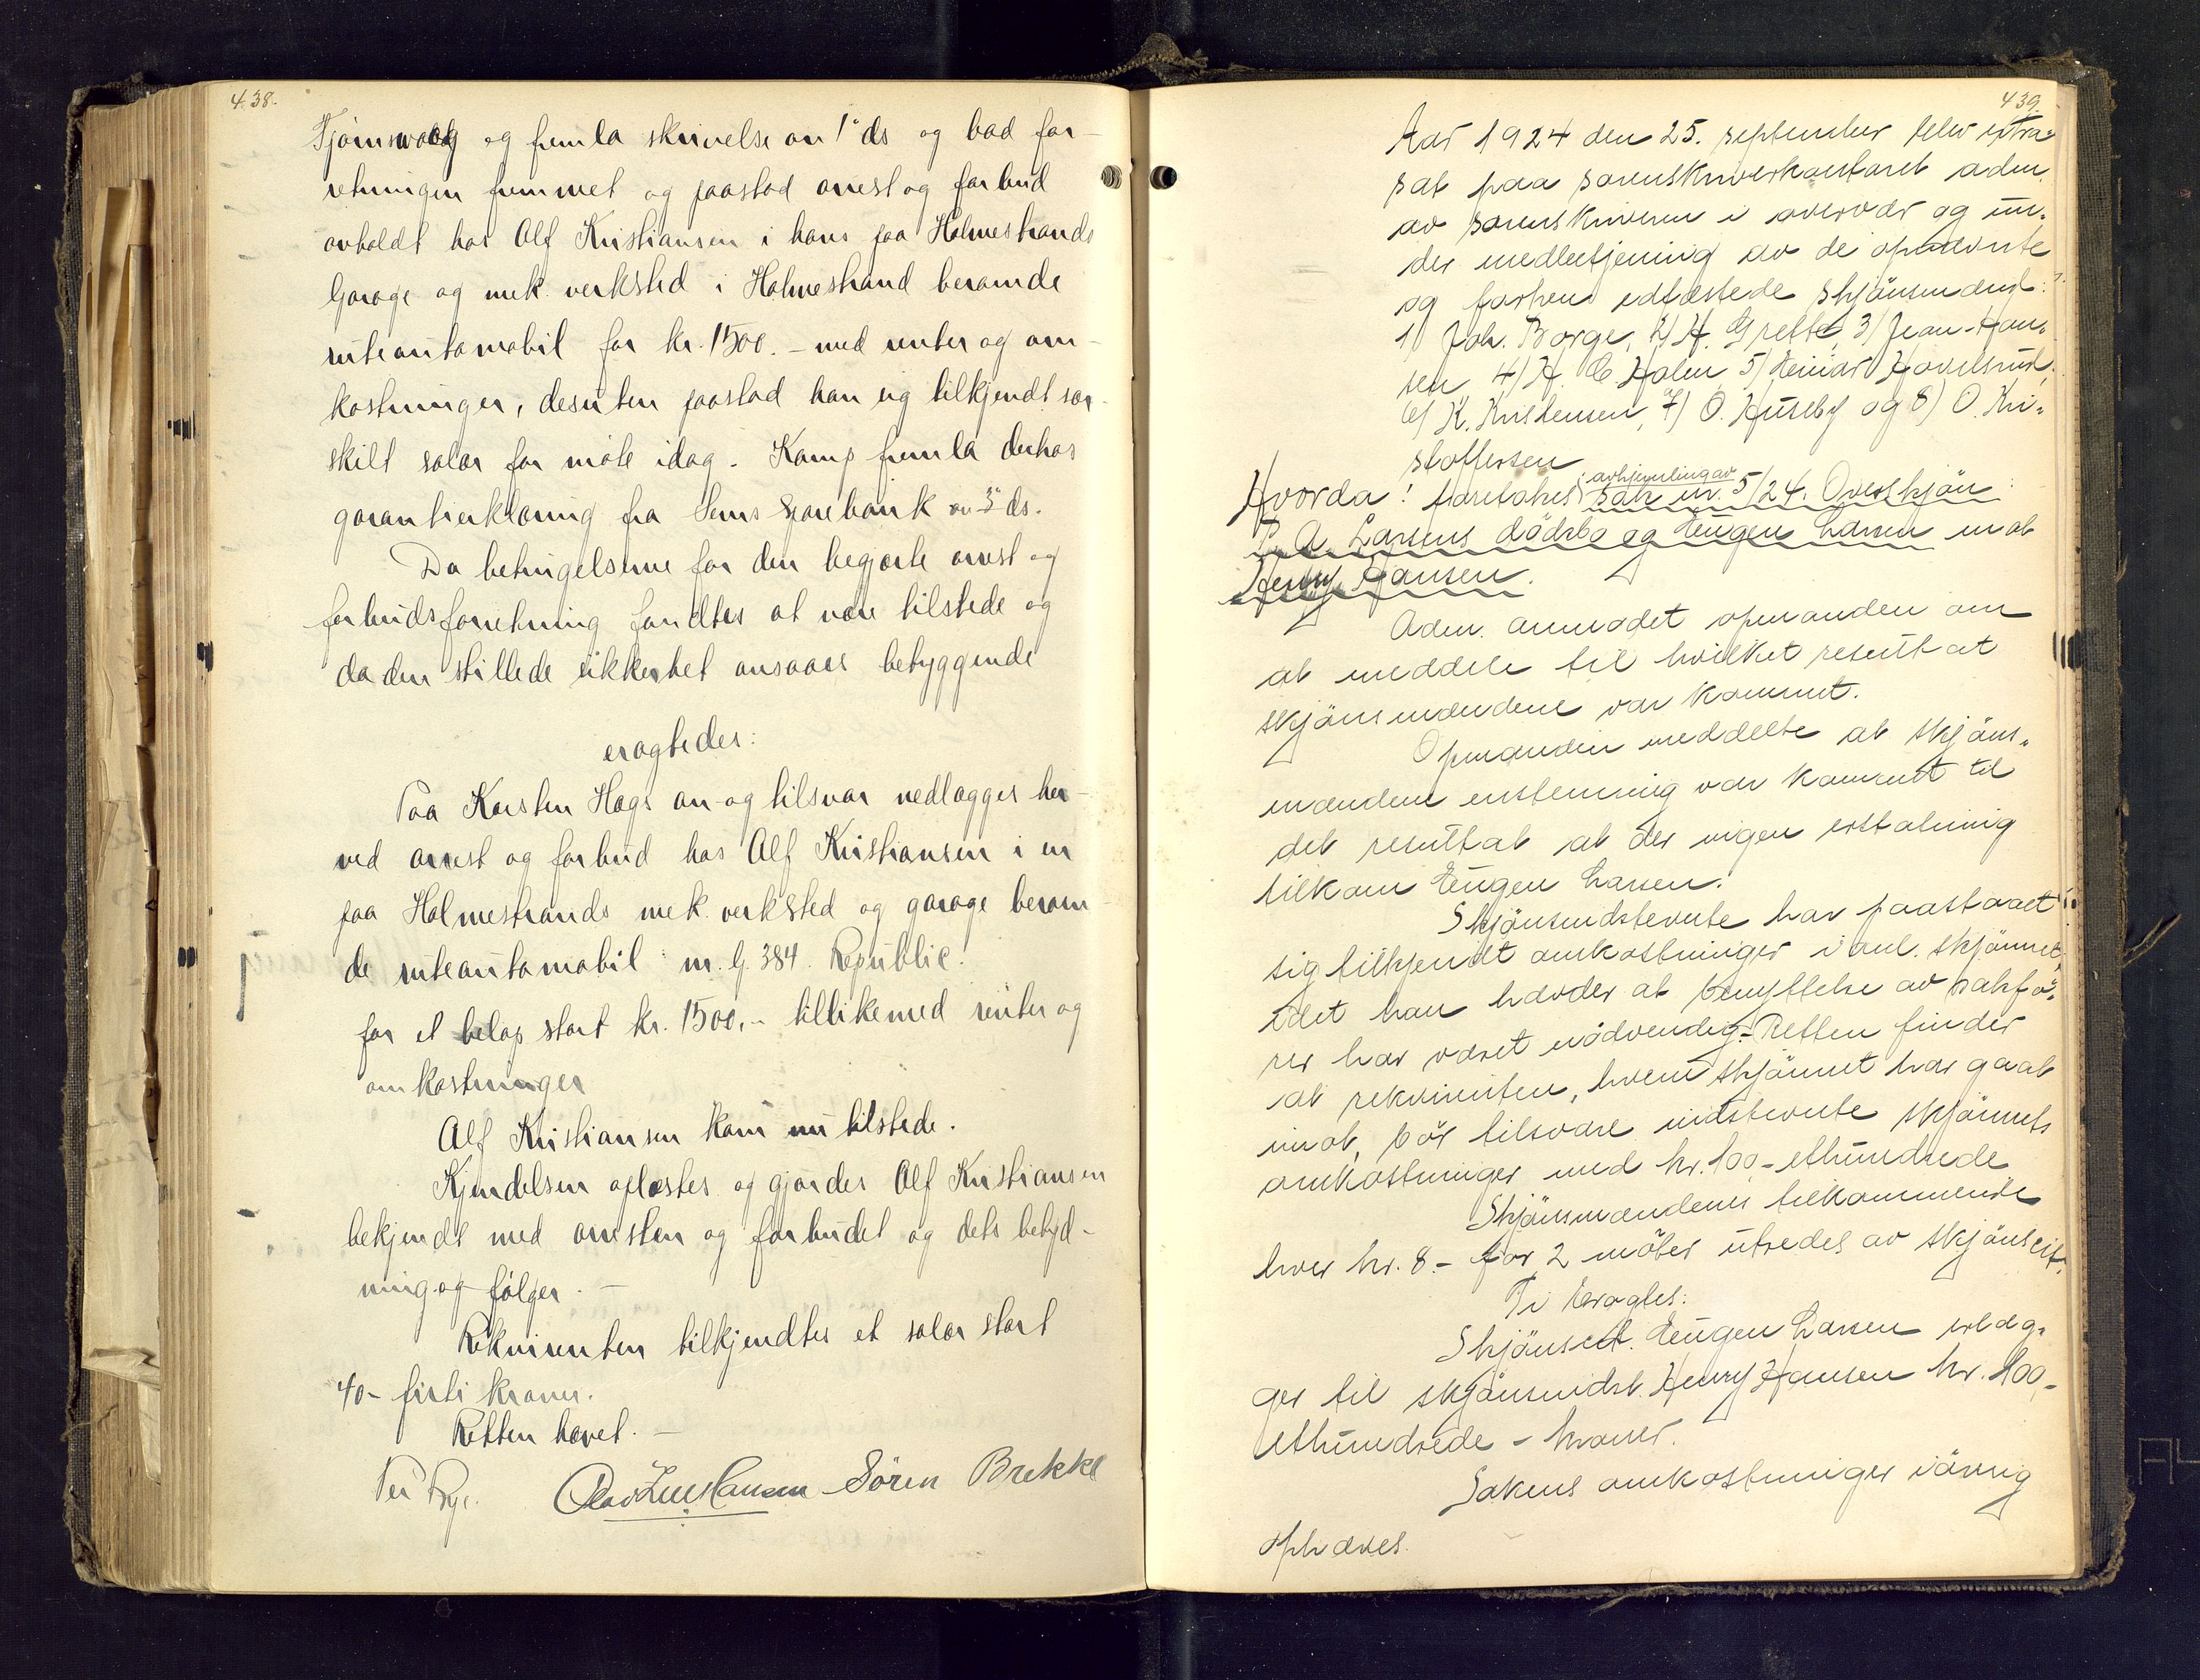 438.
Tjømswaag og fremla skrivelse av 1ste ds og bad for-
retningen fremmet og paastod arrest og forbud
avholdt hos Alf Kristiansen i hans paa Holmestrands
Garage og mek. verksted i Holmestrand beroende
ruteautomobil for kr. 1500.- med renter og om-
kostninger, desuten paastod han sig tilkjendt sær-
skilt salær for møte idag. Kamp fremla derhos
garantierklæring fra Sems Sparebank av 3. ds.
Da betingelserne for den begjærte arrest og
forbudsforretning fandtes at være tilstede og
da den stillede sikkerhet ansaaes betryggende
eragtedes:
Paa Karsten Hags an- og tilsvar nedlægges her-
ved arrest og forbud hos Alf Kristiansen i en
paa Holmestrands mek. verksted og garage beroen-
de ruteautomobil m. G. 384. Republic.
for et beløp stort kr. 1500.- tillikemed renter og
omkostninger
Alf Kristiansen kom nu tilstede.
Kjendelsen oplæstes og gjordes Alf Kristiansen
bekjendt med arresten og forbudet og dets betyd-
ning og følger. -
Rekvirenten tilkjendtes et salær stort
40- firti kroner.
Retten hævet. -
Søren Brekke
439.
Aar 1924 den 25. september blev extra-
ret paa sorenskriverkontoret adm.
av sorenskriveren i overvær og un-
der medbetjening av de opnævnte
og forhen edfæstede skjønsmænd:
1) Joh. Borge, 2) H. Grette, 3) Jean-Han-
sen, 4) H. C. Holm 5) Einar Havelsrud,
6) K. Kristensen, 7) O. Huseby og 8) O. Kri-
stoffersen
Hvorda! foretokes avhjemling av sak nr. 5/24. Overskjøn:
P. A. Larsens dødsbo og Eugen Larsen mot
Henry Hansen.
Adm. anmodet opmanden om
at meddele til hvilket resultat
skjønsmændene var kommet.
Opmanden meddelte at skjøns-
mændene enstemmig var kommet til
det resultat at der ingen erstatning
tilkom Eugen Larsen.
Skjønsindstevnte har paastaaet
sig tilkjendt omkostninger i anl. skjønnet,
idet han hævder at benyttelse av sakfø-
rer har været nødvendig. Retten finder
at rekvirenten, hvem skjønnet har gaat
imot, bør tilsvare indstevnte skjønnets
omkostninger med kr. 100,- ethundrede
Skjønsmændenes tilkommende
hver kr. 8.- for 2 møter utredes av skjønscit.
Ti Eragtes:
Skjønscit. Eugen Larsen ilæg-
ges til skjønsindst. Henry Hansen kr. 100,-
ethundrede - kroner.
Sakens omkostninger iøvrig
ophæves.